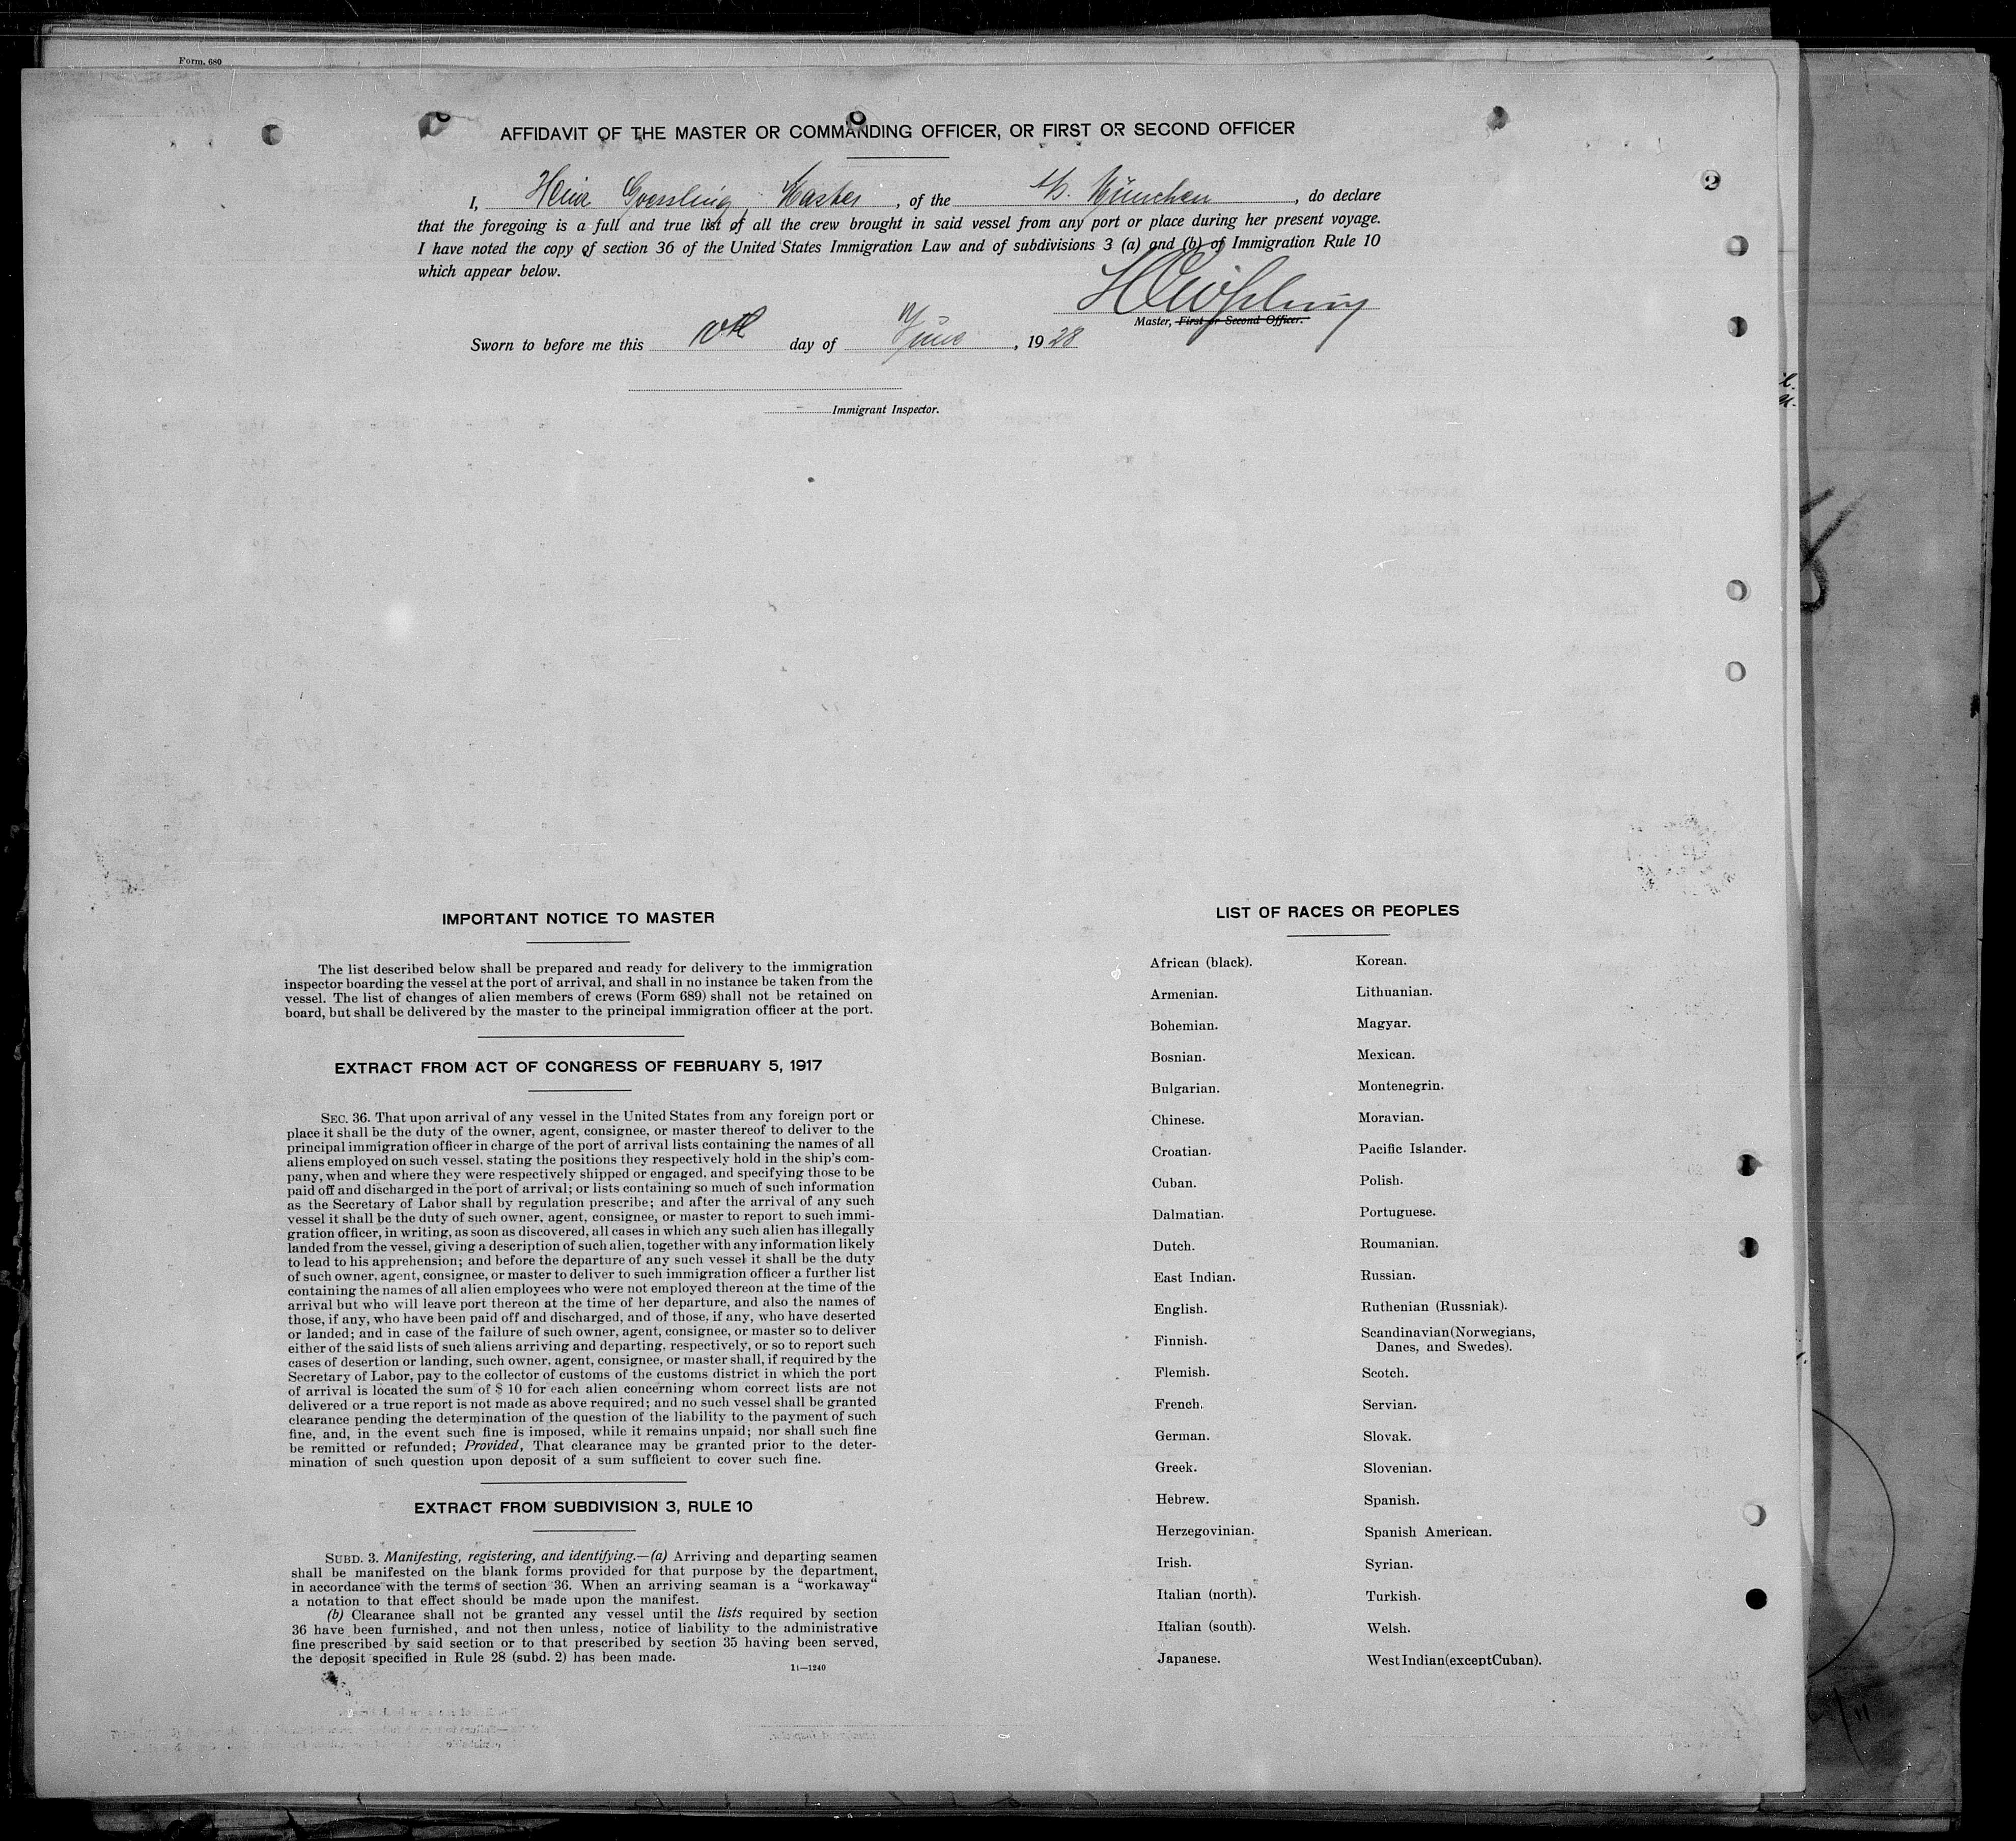 Form. 680
AFFIDAVIT OF THE MASTER OR COMMANDING OFFICER, OR FIRST OR SECOND OFFICER
2
I, Heinr Goessling, Master, of the s/s. München, do declare
that the foregoing is a full and true list of all the crew brought in said vessel from any port or place during her present voyage.
I have noted the copy of section 36 of the United States Immigration Law and of subdivisions 3 (a) and (b) of Immigration Rule 10
which appear below.
Master, First or Second Officer.
Sworn to before me this day of June, 1928
Immigrant Inspector.
IMPORTANT NOTICE TO MASTER
The list described below shall be prepared and ready for delivery to the immigration
inspector boarding the vessel at the port of arrival, and shall in no instance be taken from the
vessel. The list of changes of alien members of crews (Form 689) shall not be retained on
board, but shall be delivered by the master to the principal immigration officer at the port.
EXTRACT FROM ACT OF CONGRESS OF FEBRUARY 5, 1917
SEC. 36. That upon arrival of any vessel in the United States from any foreign port or
place it shall be the duty of the owner, agent, consignee, or master thereof to deliver to the
principal immigration officer in charge of the port of arrival lists containing the names of all
aliens employed on such vessel, stating the positions they respectively hold in the ship's com-
pany, when and where they were respectively shipped or engaged, and specifying those to be
paid off and discharged in the port of arrival; or lists containing so much of such information
as the Secretary of Labor shall by regulation prescribe; and after the arrival of any such
vessel it shall be the duty of such owner, agent, consignee, or master to report to such immi-
gration officer, in writing, as soon as discovered, all cases in which any such alien has illegally
landed from the vessel, giving a description of such alien, together with any information likely
to lead to his apprehension; and before the departure of any such vessel it shall be the duty
of such owner, agent, consignee, or master to deliver to such immigration officer a further list
containing the names of all alien employees who were not employed thereon at the time of the
arrival but who will leave port thereon at the time of her departure, and also the names of
those, if any, who have been paid off and discharged, and of those, if any, who have deserted
or landed; and in case of the failure of such owner, agent, consignee, or master so to deliver
either of the said lists of such aliens arriving and departing, respectively, or so to report such
cases of desertion or landing, such owner, agent, consignee, or master shall, if required by the
Secretary of Labor, pay to the collector of customs of the customs district in which the port
of arrival is located the sum of $ 10 for each alien concerning whom correct lists are not
delivered or a true report is not made as above required; and no such vessel shall be granted
clearance pending the determination of the question of the liability to the payment of such
fine, and, in the event such fine is imposed, while it remains unpaid; nor shall such fine
be remitted or refunded; Provided, That clearance may be granted prior to the deter-
mination of such question upon deposit of a sum sufficient to cover such fine.
EXTRACT FROM SUBDIVISION 3, RULE 10
SUBD. 3. Manifesting, registering, and identifying.—(a) Arriving and departing seamen
shall be manifested on the blank forms provided for that purpose by the department,
in accordance with the terms of section 36. When an arriving seaman is a "workaway"
a notation to that effect should be made upon the manifest.
(b) Clearance shall not be granted any vessel until the lists required by section
36 have been furnished, and not then unless, notice of liability to the administrative
fine prescribed by said section or to that prescribed by section 35 having been served,
the deposit specified in Rule 28 (subd. 2) has been made.
11—1240
LIST OF RACES OR PEOPLES
African (black).
Armenian.
Bohemian.
Bosnian.
Bulgarian.
Chinese.
Croatian.
Cuban.
Dalmatian.
Dutch.
East Indian.
English.
Finnish.
Flemish.
French.
German.
Greek.
Hebrew.
Herzegovinian.
Irish.
Italian (north).
Italian (south).
Japanese.
Korean.
Lithuanian.
Magyar.
Mexican.
Montenegrin.
Moravian.
Pacific Islander.
Polish.
Portuguese.
Roumanian.
Russian.
Ruthenian (Russniak).
Scandinavian (Norwegians,
Danes, and Swedes).
Scotch.
Servian.
Slovak.
Slovenian.
Spanish.
Spanish American.
Syrian.
Turkish.
Welsh.
West Indian (except Cuban).